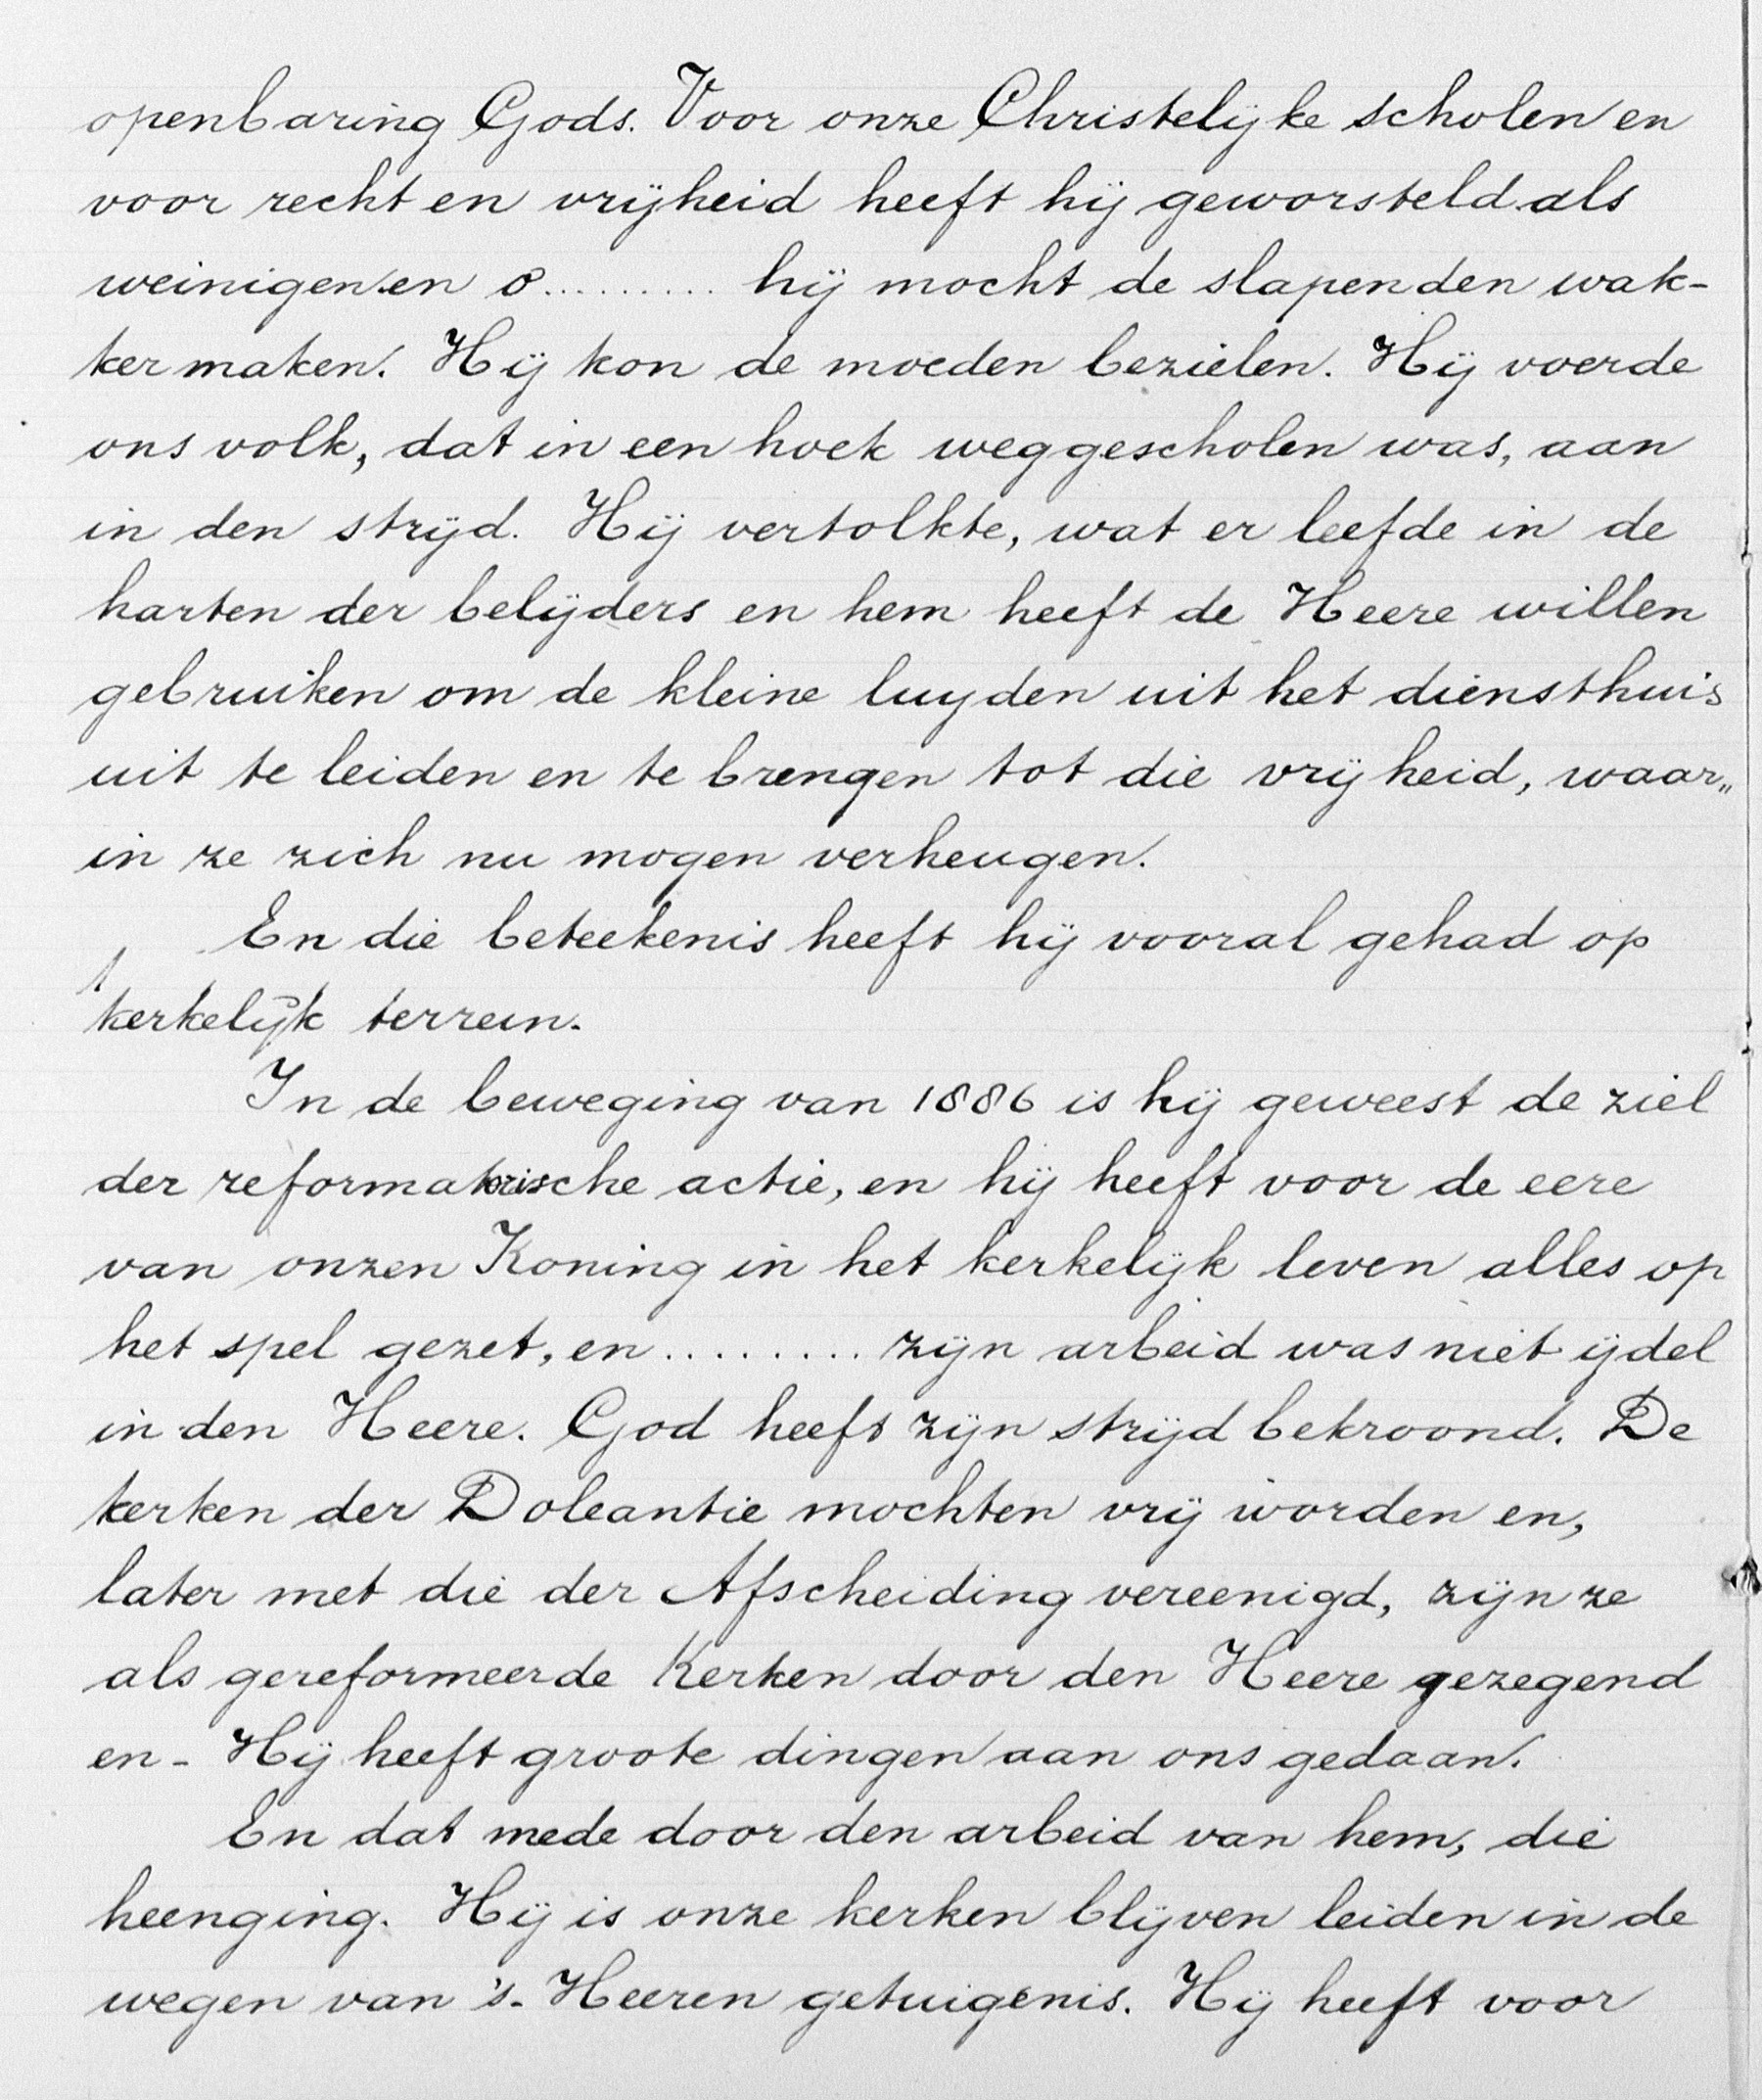 openbaring Gods. Voor onze Christelijke scholen en
voor recht en vrijheid heeft hij geworsteld als
weinigen en o......... hij mocht de slapenden wak-
ker maken. Hij kon de moeden bezielen. Hij voerde
ons volk, dat in een hoek weggescholen was, aan
in den strijd. Hij vertolkte, wat er leefde in de
harten der belijders en hem heeft de Heere willen
gebruiken om de kleine luyden uit het diensthuis
uit te leiden en te brengen tot die vrijheid, waar„
in ze zich nu mogen verheugen.
En die beteekenis heeft hij vooral gehad op
kerkelijk terrein.
In de beweging van 1886 is hij geweest de ziel
der reformatorische actie, en hij heeft voor de eere
van onzen Koning in het kerkelijk leven alles op
het spel gezet, en......... zijn arbeid was niet ijdel
in den Heere. God heeft zijn strijd bekroond. De
kerken der Doleantie mochten vrij worden en,
later met die der Afscheiding vereenigd, zijn ze
als gereformeerde Kerken door den Heere gezegend
en - Hij heeft groote dingen aan ons gedaan.
En dat mede door den arbeid van hem, die
heenging. Hij is onze kerken blijven leiden in de
wegen van 's-Heeren getuigenis. Hij heeft voor